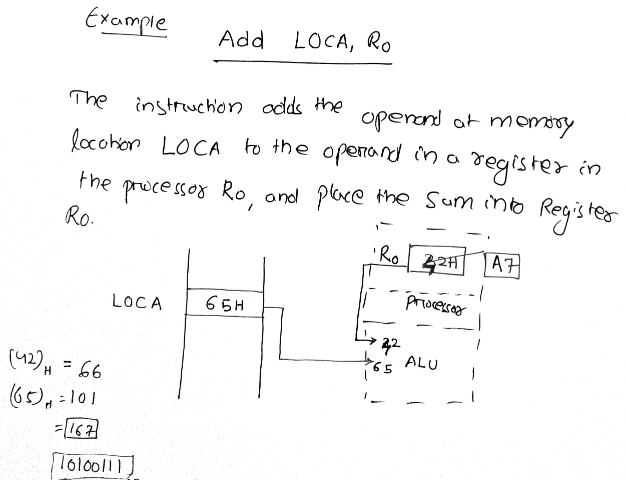 Example
Add LOCA, R0
The instruction adds the operand at memory
location LOCA to the operand in a register in
the processor R0, and place the sum into Register
R0.
R0 42H A7
LOCA 65H
Processor
42
65 ALU
(42)H = 66
(65)H = 101
= 167
10100111